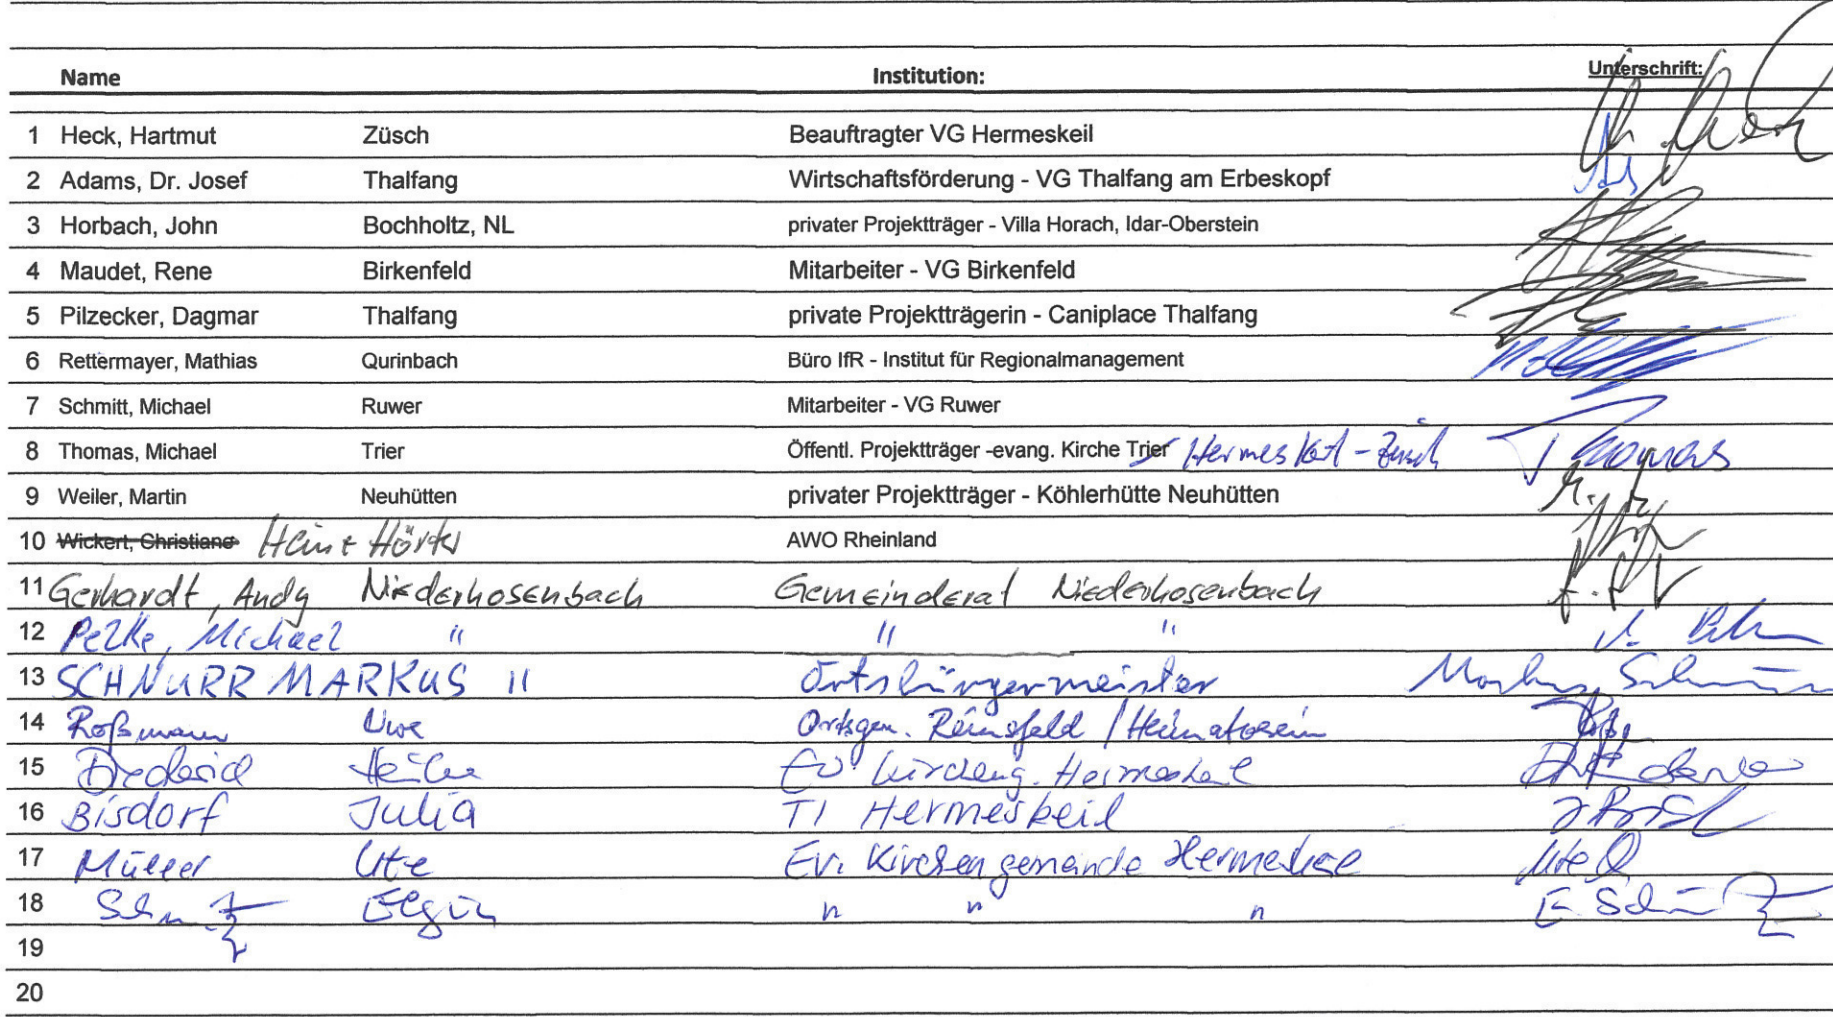 Name Institution: Unterschrift:
1 Heck, Hartmut Züsch Beauftragter VG Hermeskeil
2 Adams, Dr. Josef Thalfang Wirtschaftsförderung - VG Thalfang am Erbeskopf
3 Horbach, John Bochholtz, NL privater Projektträger - Villa Horach, Idar-Oberstein
4 Maudet, Rene Birkenfeld Mitarbeiter - VG Birkenfeld
5 Pilzecker, Dagmar Thalfang private Projektträgerin - Caniplace Thalfang
6 Rettermayer, Mathias Qurinbach Büro IfR - Institut für Regionalmanagement
7 Schmitt, Michael Ruwer Mitarbeiter - VG Ruwer
8 Thomas, Michael Trier Öffentl. Projektträger -evang. Kirche Trier Hermeskeil - Züsch Thomas
9 Weiler, Martin Neuhütten privater Projektträger - Köhlerhütte Neuhütten
10 Wickert, Christiane AWO Rheinland
11 Gerhardt, Andy Niederhosenbach Gemeinderat Niederhosenbach
12 Michael " " "
13 SCHNURR MARKUS " Ortsbürgermeister Markus
14 Roßmann Uwe Ortsgem. Reinsfeld / Heimatverein
15 Ev. Kircheng. Hermeskeil
16 Bisdorf Julia TI Hermeskeil
17 Müller Ute Ev. Kirchengemeinde Hermeskeil Ute
18 " " "
19
20